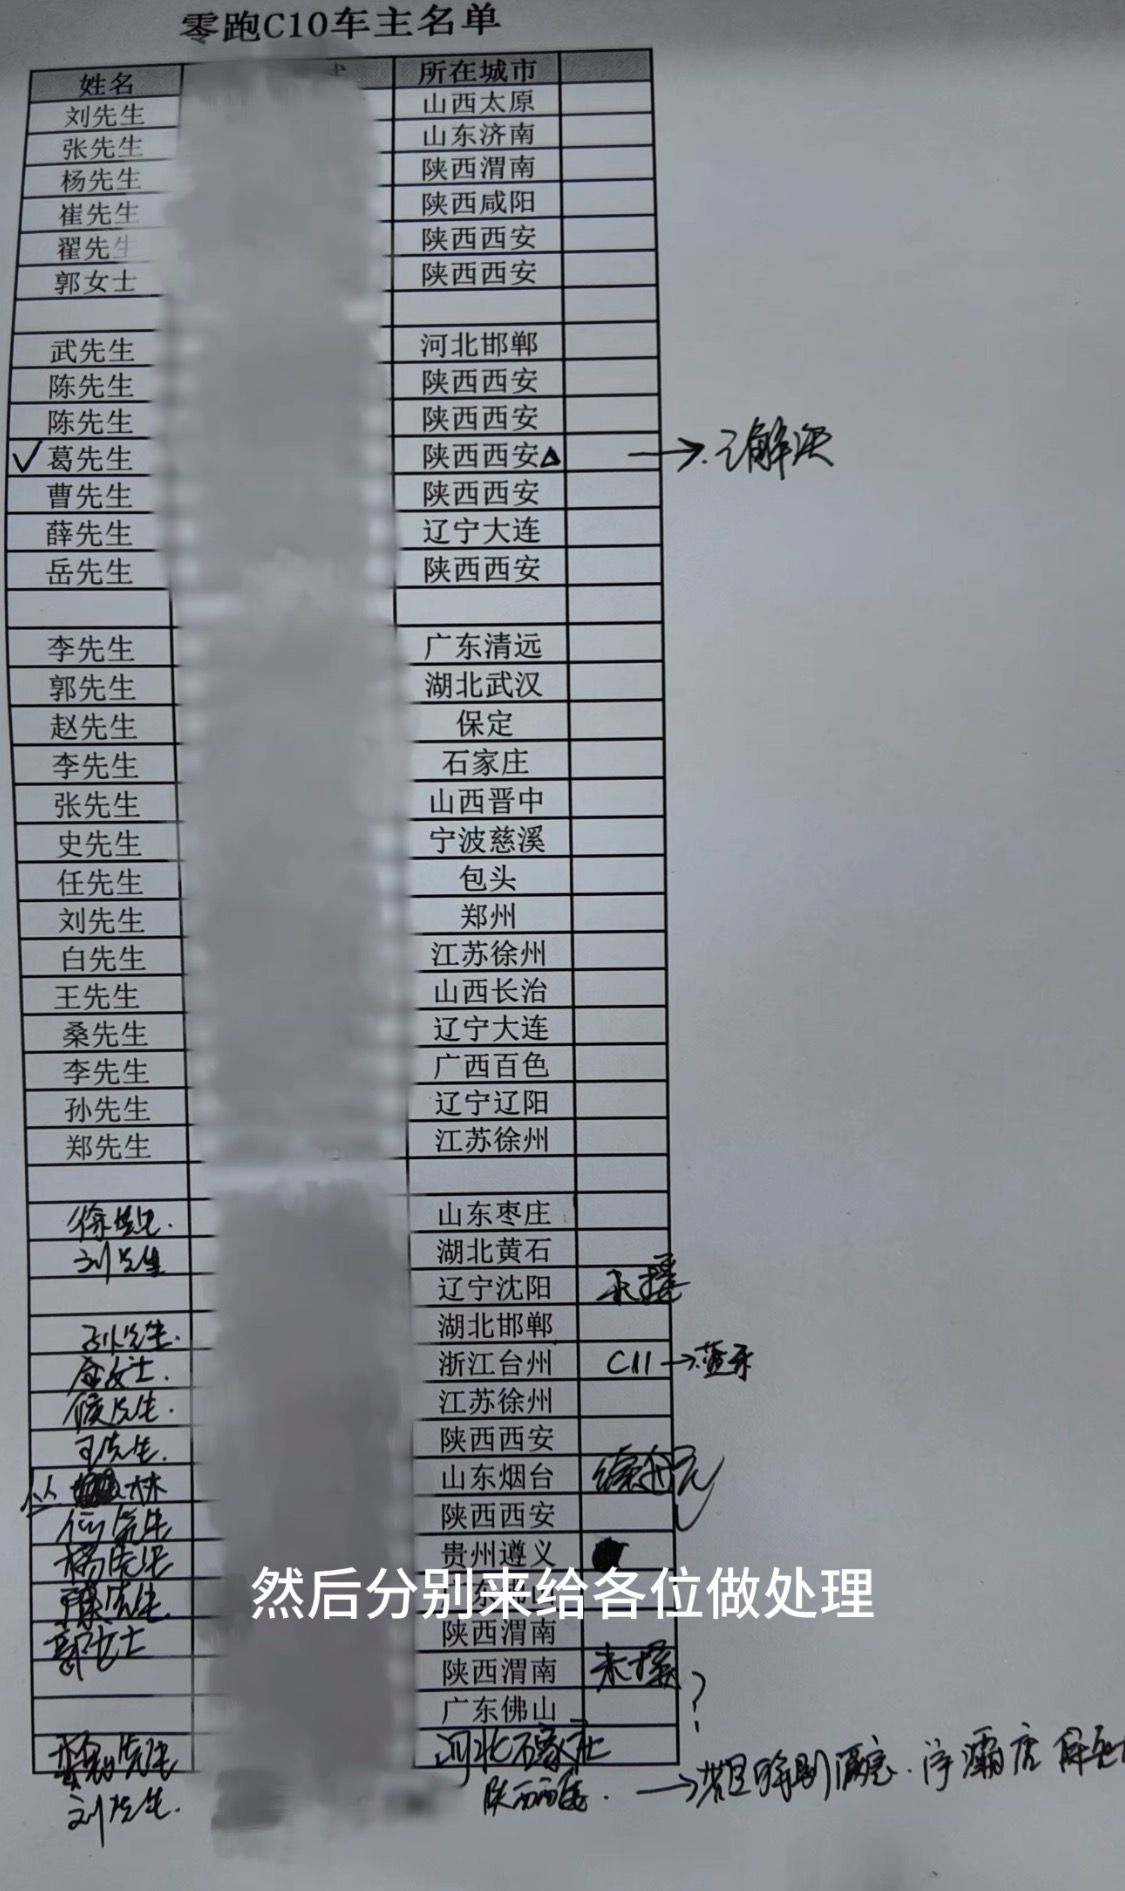 零跑C10车主名单
姓名 所在城市
刘先生 山西太原
张先生 山东济南
杨先生 陕西渭南
崔先生 陕西咸阳
翟先生 陕西西安
郭女士 陕西西安
武先生 河北邯郸
陈先生 陕西西安
陈先生 陕西西安
✓葛先生 陕西西安△ →已解决
曹先生 陕西西安
薛先生 辽宁大连
岳先生 陕西西安
李先生 广东清远
郭先生 湖北武汉
赵先生 保定
李先生 石家庄
张先生 山西晋中
史先生 宁波慈溪
任先生 包头
刘先生 郑州
白先生 江苏徐州
王先生 山西长治
桑先生 辽宁大连
李先生 广西百色
孙先生 辽宁辽阳
郑先生 江苏徐州
徐先生. 山东枣庄
刘先生 湖北黄石
辽宁沈阳 未接
孙先生. 湖北邯郸
女士. 浙江台州 C11→蓝牙
侯先生. 江苏徐州
王先生. 陕西西安
丛 林 山东烟台
先生 陕西西安
杨先生 贵州遵义
先生
郭女士 陕西渭南
陕西渭南 未接
广东佛山 ?
先生 河北石家庄
刘先生. 陕西西安. →
然后分别来给各位做处理